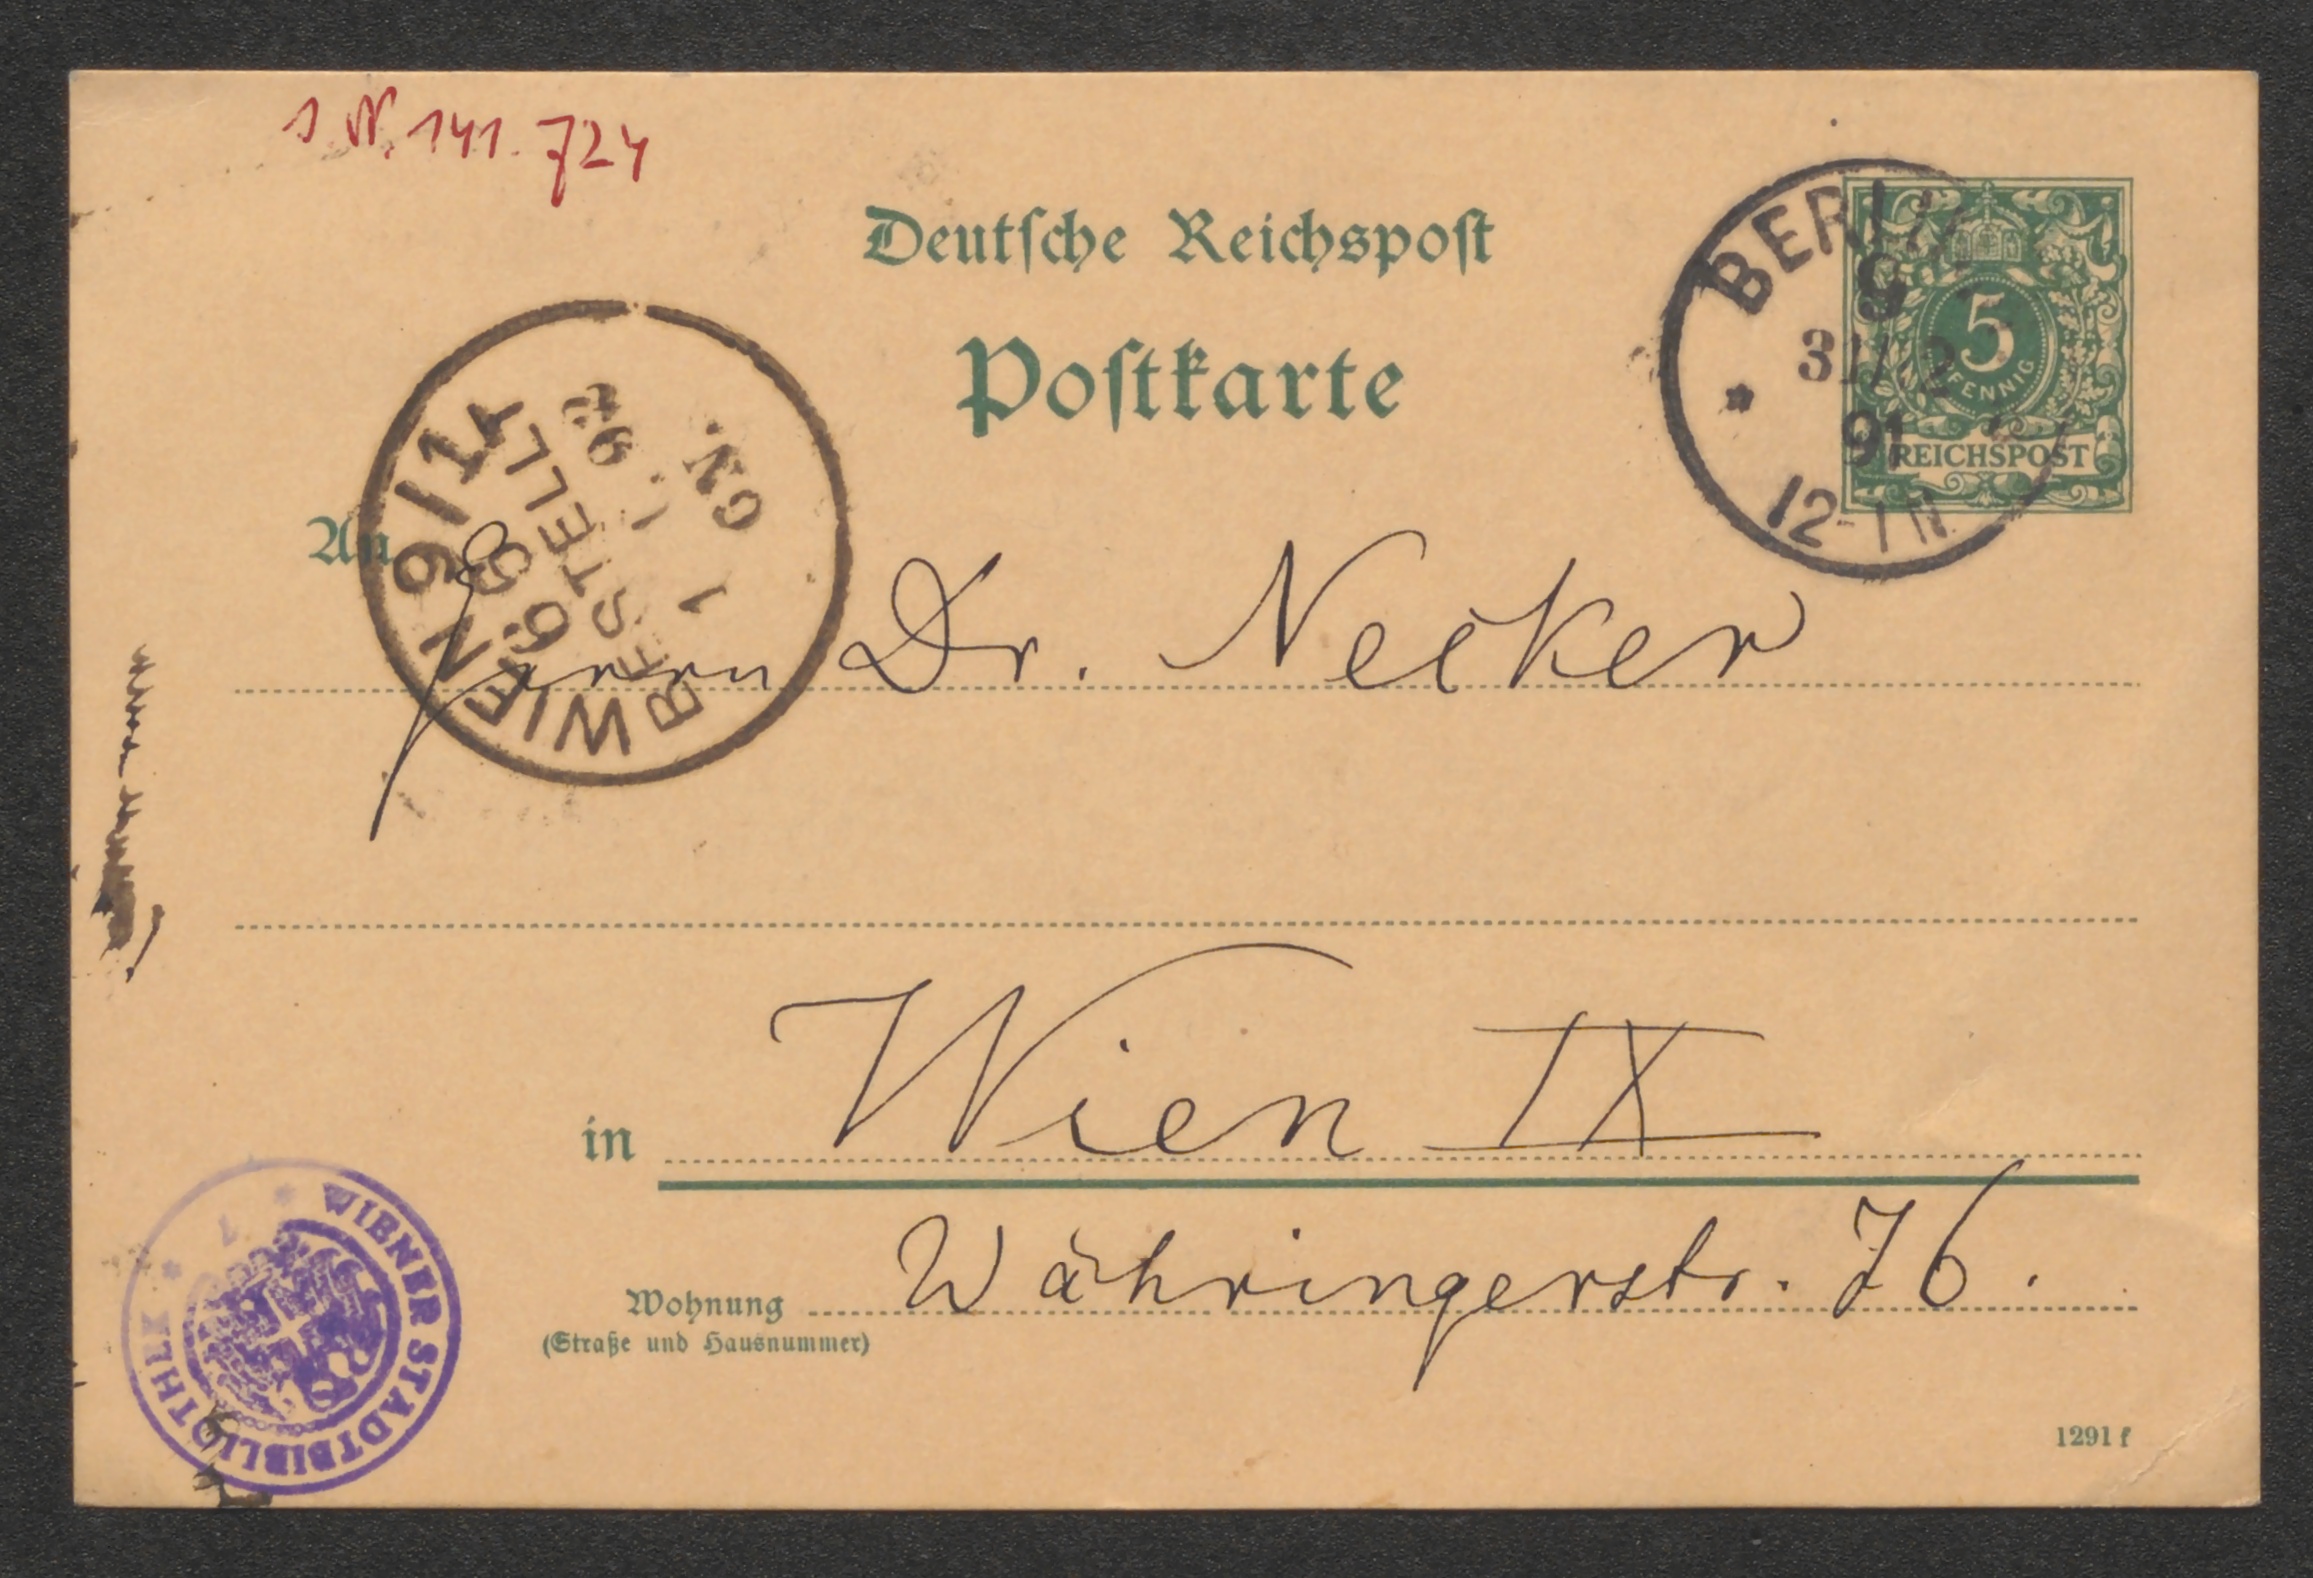 I.N. 141.724
Deutsche Reichspost
Postkarte
BERLIN
9
31/12
91
12-1N.
5
PFENNIG
REICHSPOST
WIEN 9/1
BESTELLT
1. 1. 92
An
Herrn Dr. Necker
in Wien IX
Wohnung Währingerstr. 76.
(Straße und Hausnummer)
WIENER STADTBIBLIOTHEK
1291 f